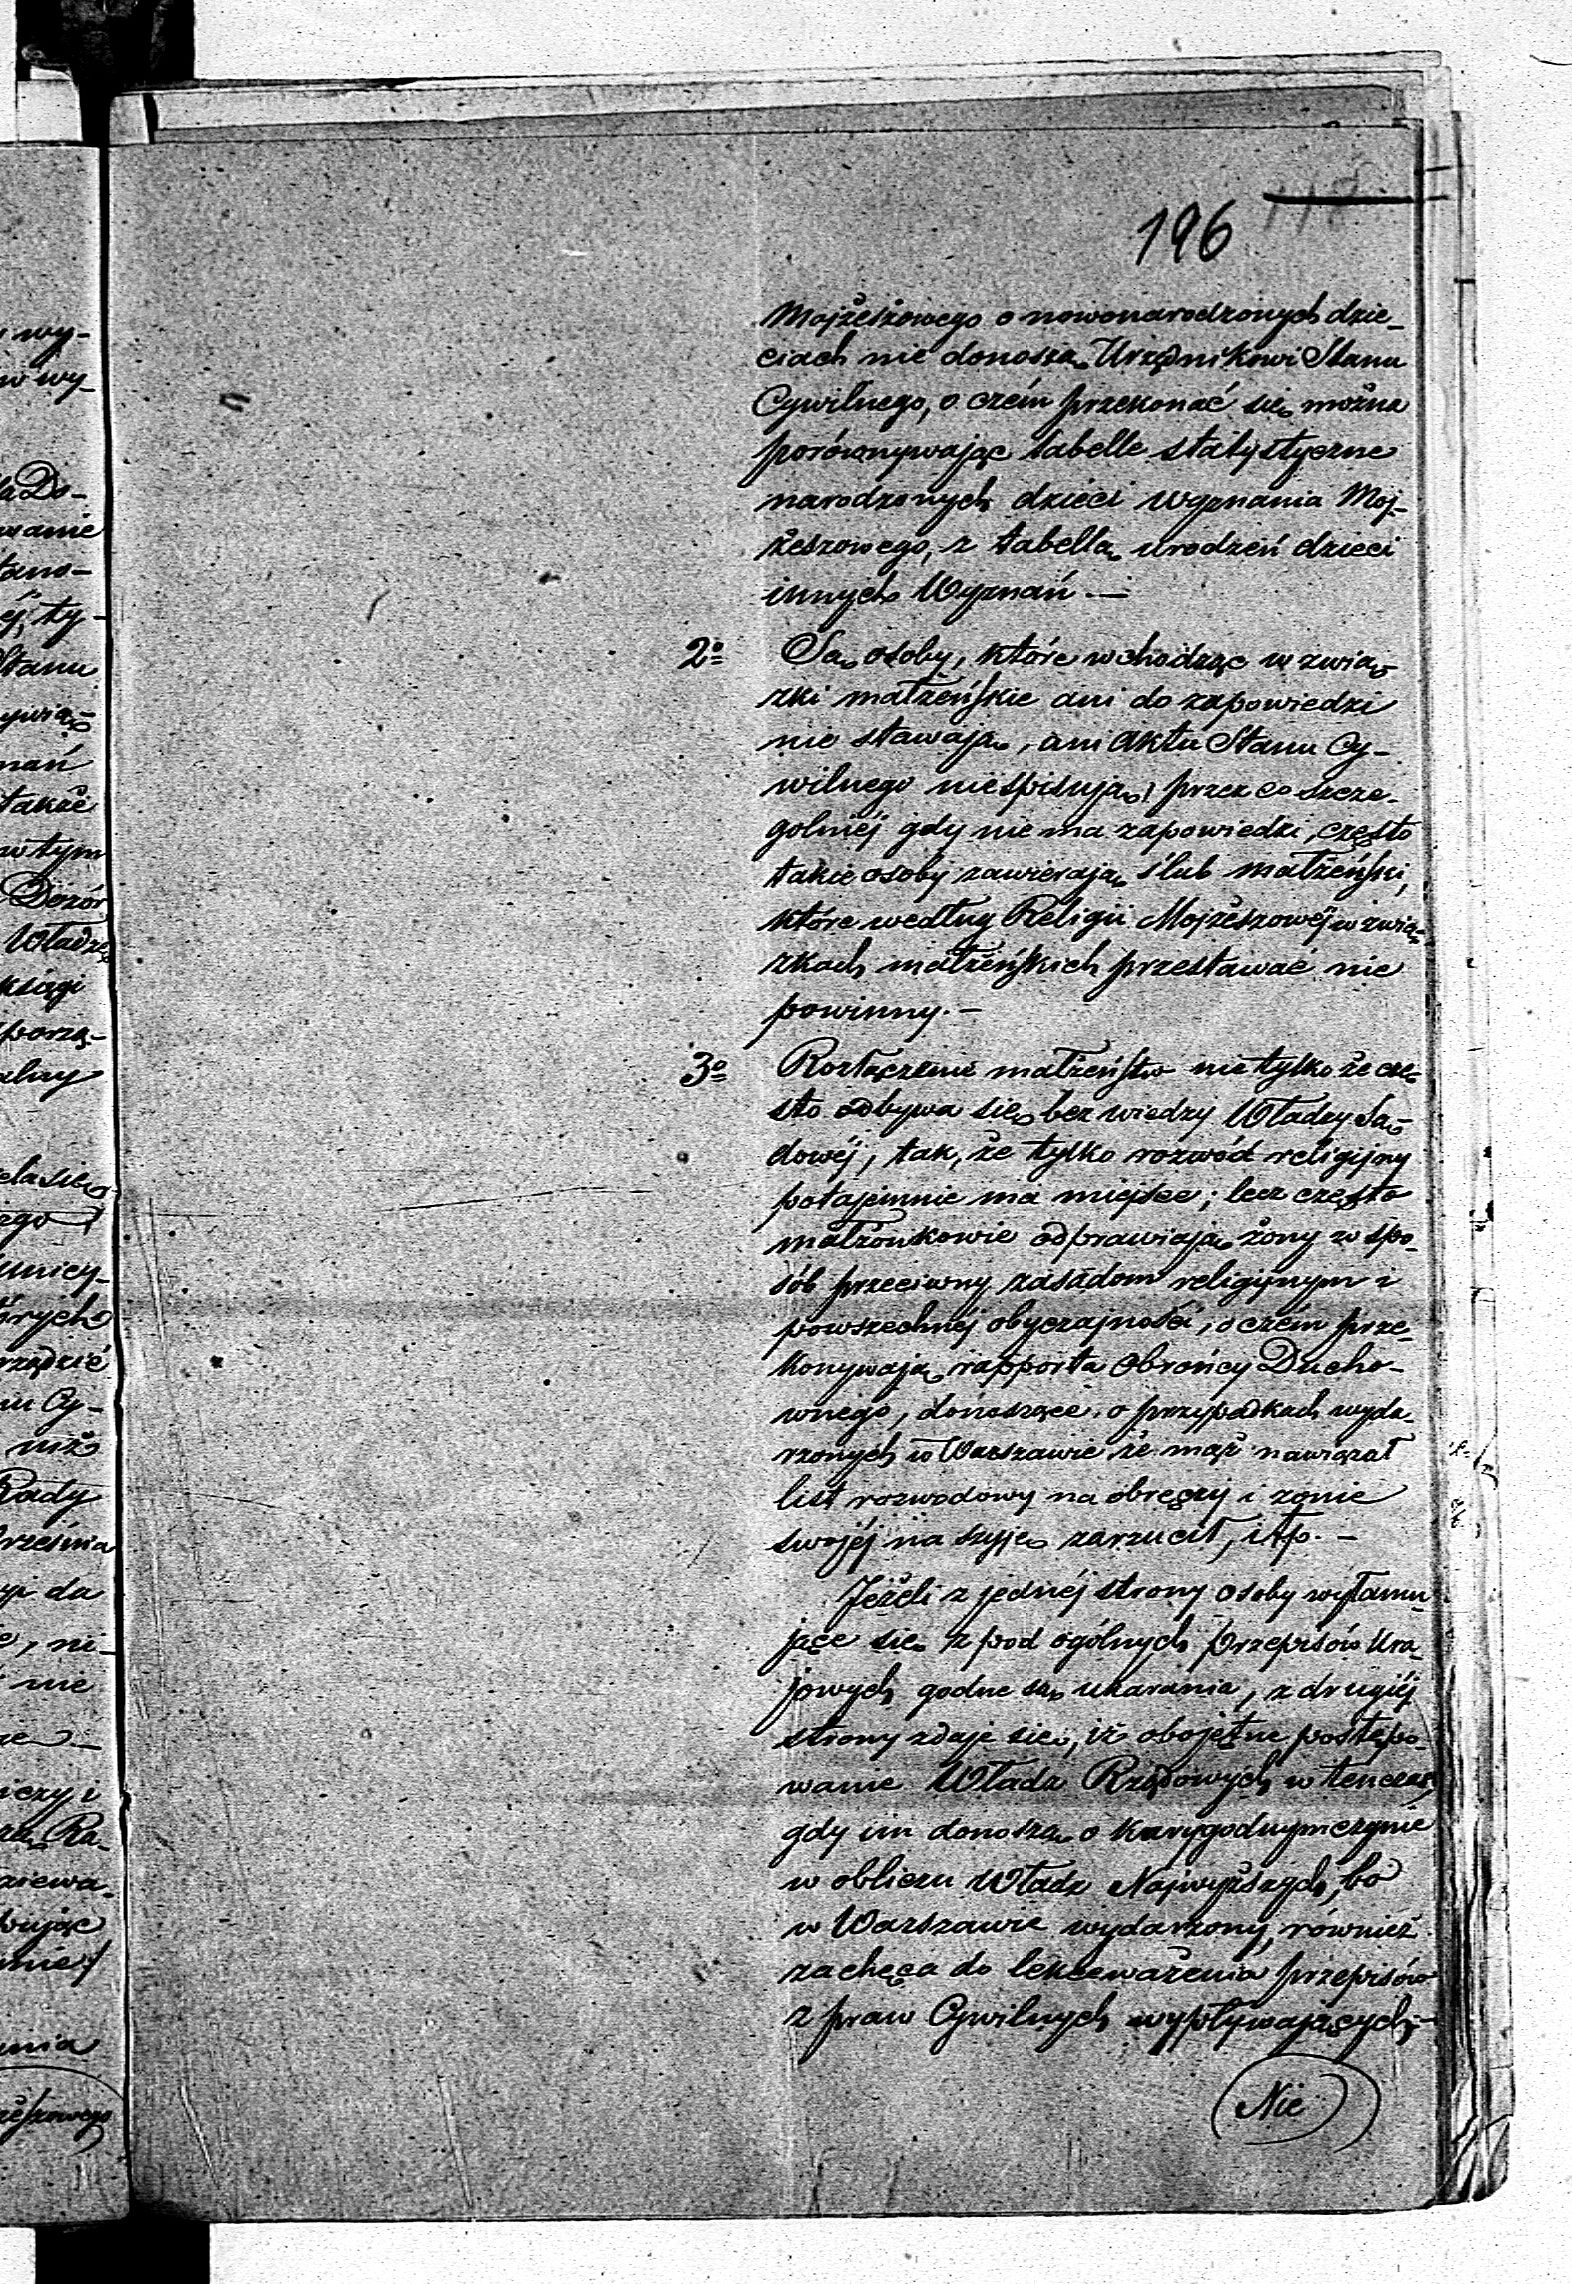 196
Mojżeszowego o nowonarodzonych dzie-
ciach nie donoszą Urzędnikowi Stanu
Cywilnego, o czém przekonać się można
porównywając tabelle statystyczne
narodzonych dzieci wyznania Moj-
żeszowego, z tabellą urodzeń dzieci
innych Wyznań.—
2o Są osoby, które wchodząc w zwią-
zki małżeńskie ani do zapowiedzi
nie stawają, ani Aktu Stanu Cy-
wilnego niespisują, przez co szcze-
gólniéj gdy nie ma zapowiedzi, często
takie osoby zawierają ślub małżeński,
które według Religii Mojżeszowéj w zwią-
zkach małżeńskich przestawać nie
powinny.—
3o Rozłączenie małżeństw nie tylko że czę-
sto odbywa się bez wiedzy Władzy Są-
dowéj, tak, że tylko rozwód religijny
potajemnie ma miejsce; lecz często
małżonkowie odprawiają żony w spo-
sób przeciwny zasadom religijnym i
powszechnéj obyczajności, o czém prze-
konywają rapporta Obrońcy Ducho-
wnego, donoszące o przypadkach wyda-
rzonych w Warszawie że mąż nawiązał
list rozwodowy na obręczy i żonie
swojéj na szyję zarzucił, itp.—
Jeżeli z jednéj strony osoby wyłamu-
jące się z pod ogólnych przepisów kra-
jowych godne są ukarania, z drugiéj
strony zdaje się, iż obojętne postępo-
wanie Władz Rządowych w tenczas,
gdy im donoszą o karygodnym czynie
w obliczu Władz Najwyższych, bo
w Warszawie wydarzony, również
zachęca do lekceważenia przepisów
z praw Cywilnych wypływających.—
Nie